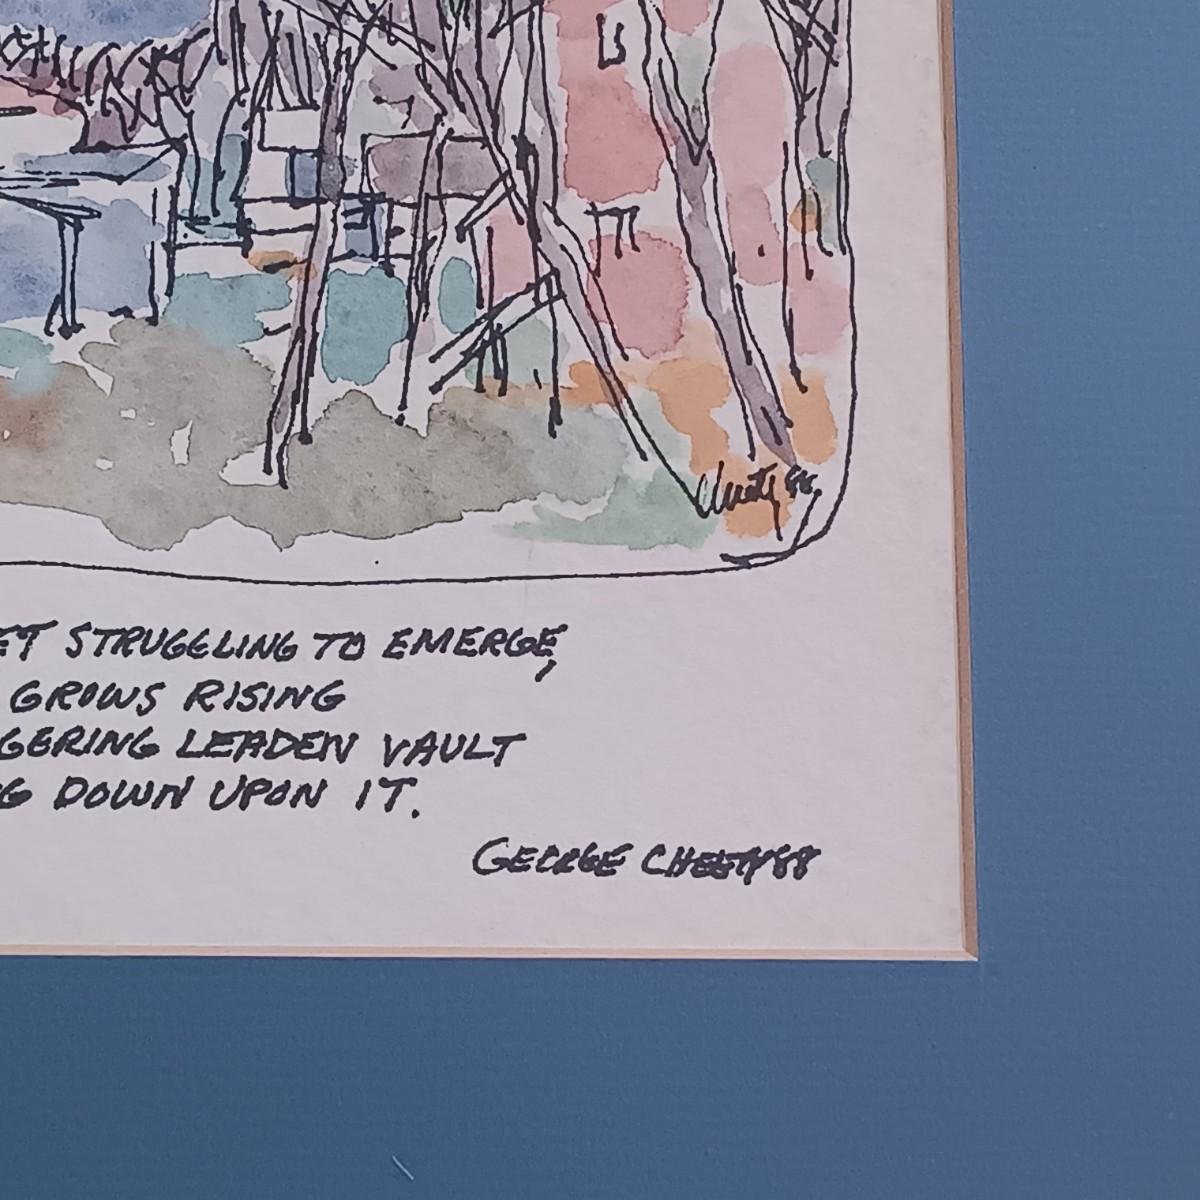 88
ET STRUGGLING TO EMERGE,
GROWS RISING
GERING LEADEN VAULT
G DOWN UPON IT.
GEORGE CHEETY 88